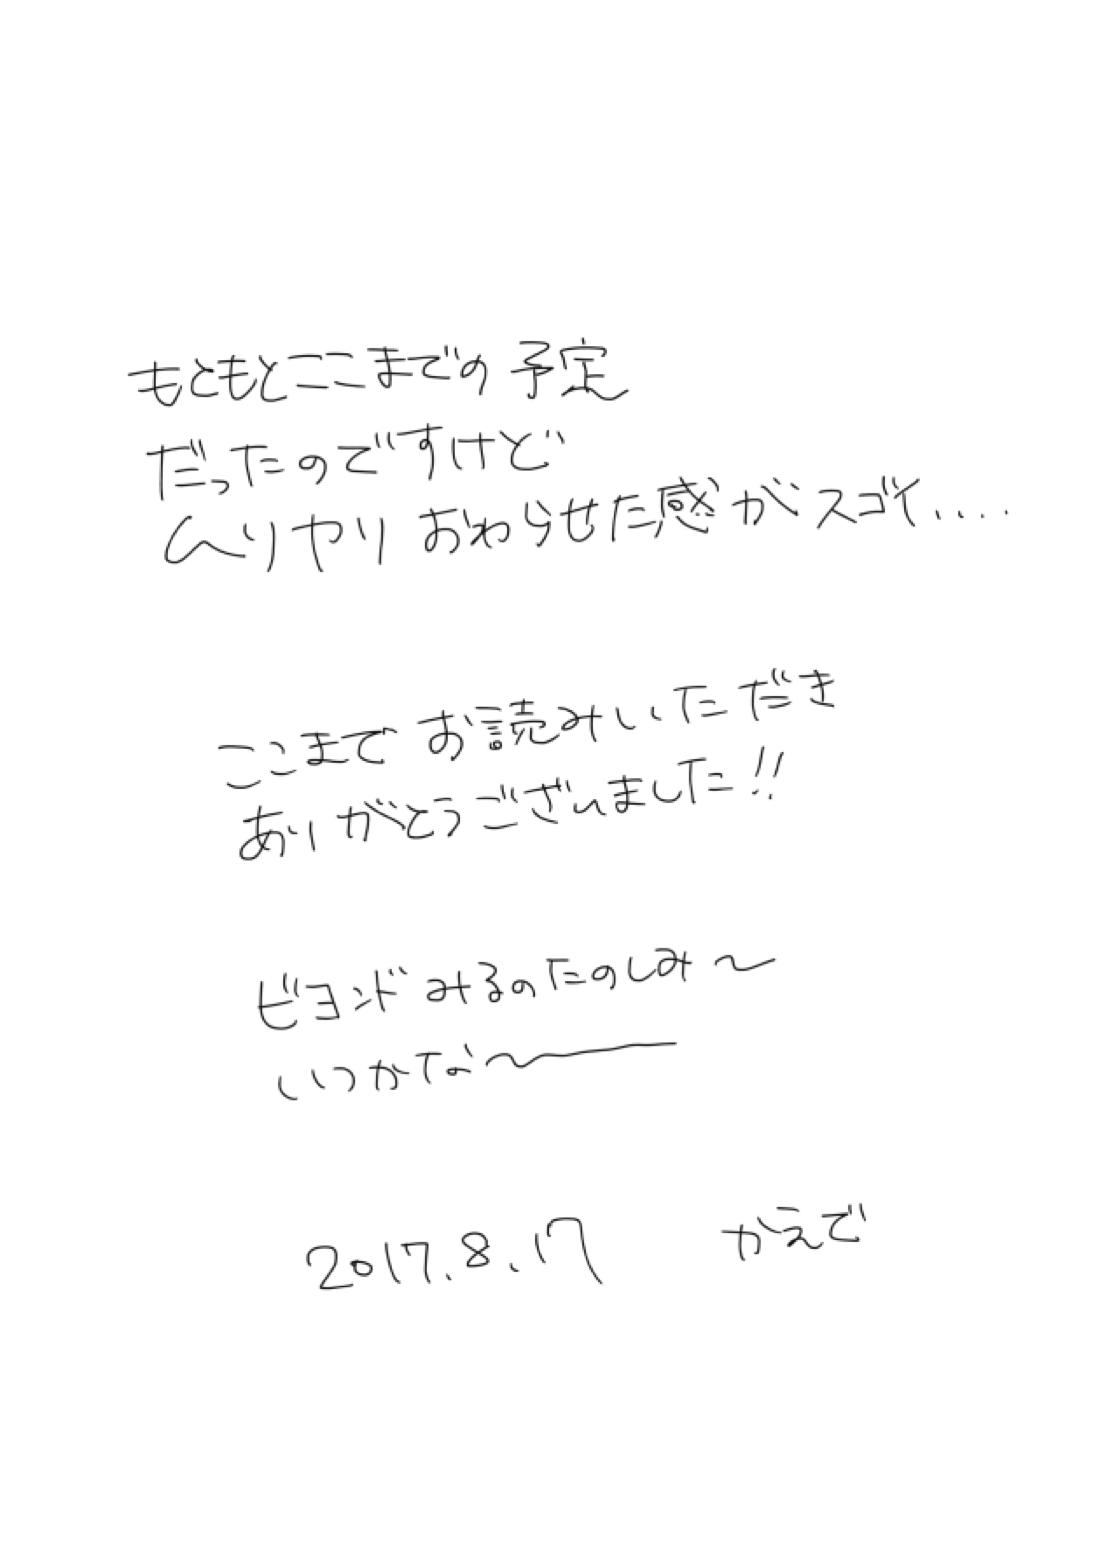 もともとここまでの予定
だったのですけど
ムリヤリおわらせた感がスゴイ....
ここまでお読みいただき
ありがとうございました!!
ビヨンドみるのたのしみ〜
いつかな〜ー
2017.8.17 かえで